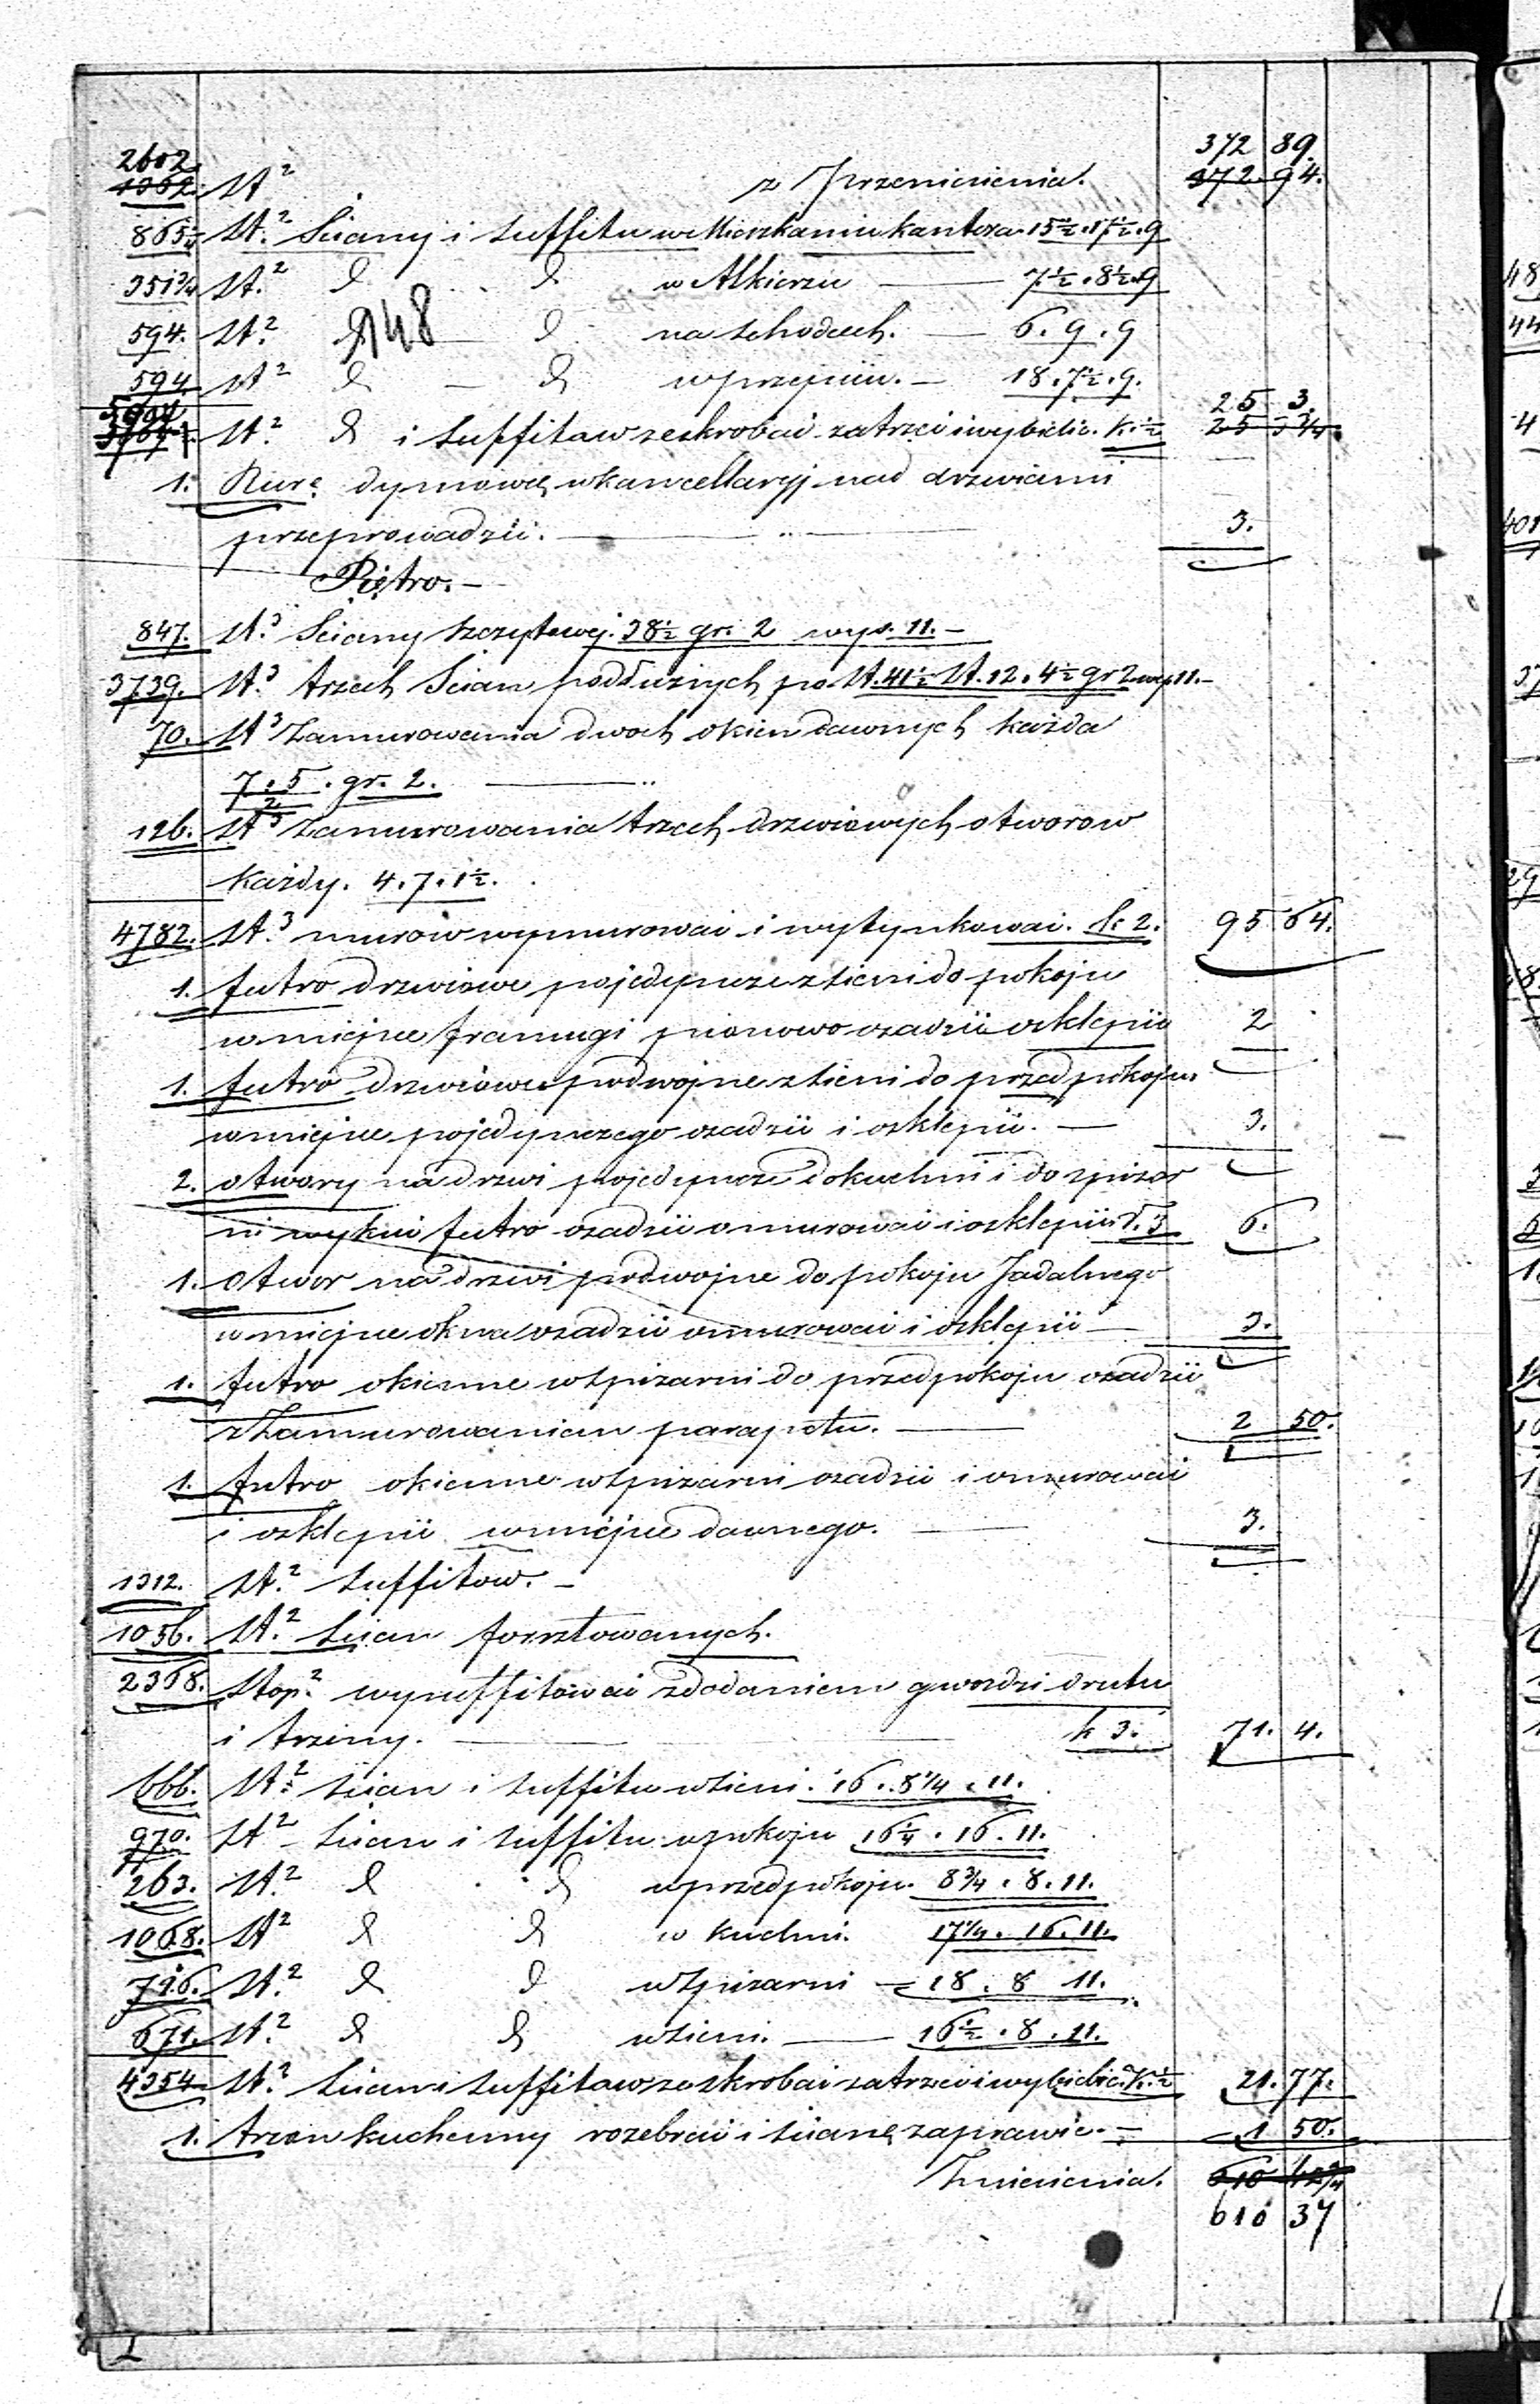 372 89.
2602. 1062. St² z Przeniesienia. 372 94.
865½ St.² Sciany i suffitu w Mieszkaniu kantora 15½.17½.9
351¾ St.² d d w Alkierzu — 7½.8½.9
594. St.² d 148 d na schodach. — 6.9.9
594 St² d — d w przejsciu. — 18.7½.9.
25 3.
5007 St.² d i suffitow zeskrobać zatrzeć i wybielić. K. ½ 25 3¾
1. Rurę dymową w kancellaryj nad drzwiami
przeprowadzić. — 3.
Piętro. —
847. St.³ Sciany szczytowej. 38½ gr. 2 wys. 11. —
3739. St.³ trzech Scian podłużnych po St. 41½ St. 12. 4½ gr 2 wys 11. —
70. St³ Zamurowania dwoch okien dawnych każda
7.5. gr. 2. —
2
126. St³ Zamurowania trzech drzwiowych otworow
każdy. 4.7.1½.
4782. St.³ murów wymurować i wytynkować. k. 2. 95 64.
1. futro drzwiowe pojedyncze z sieni do pokoju
w miejsce framugi pionowo osadzić osklepić 2
1. futro drzwiowe podwojne z sieni do przedpokoju
w miejsce pojedynczego osadzić i osklepić. — 3.
2. otwory na drzwi pojedyncze do kuchni i do spizar
ni wykuć futro osadzić omurować i osklepić. f. 3 6.
1. Otwor na drzwi podwojne do pokoju Jadalnego
w miejsce okna osadzić omurować i osklepić — 3.
1. futro okienne w spizarni do przedpokoju osadzić
z Zamurowaniem parapetu. — 2 50.
1. futro okienne w spizarni osadzić i omurować
i osklepić w miejsce dawnego. — 3.
1312. St.² suffitow. —
1056. St.² scian forsztowanych.
2368. Stop.² wysuffitować z dodaniem gwozdzi drutu
i trzciny. — k 3. 71. 4.
666. St.² scian i suffitu w sieni. 16.8¼.11.
970. St² scian i suffitu w pokoju 16¼.16.11.
263. St.² d d w przedpokoju. 8¾.8.11.
1068. St² d d w kuchni. 17¼.16.11.
716. St.² d d w spizarni — 18.8 11.
671. St.² d d w sieni. — 16½.8.11.
4354 St.² scian i suffitow zeskrobać zatrzeć i wybielić. K. ½ 21. 77.
1. trzon kuchenny rozebrać i scianę zaprawić. — 1 50.
Zniesienia. 610 42¾
610 37